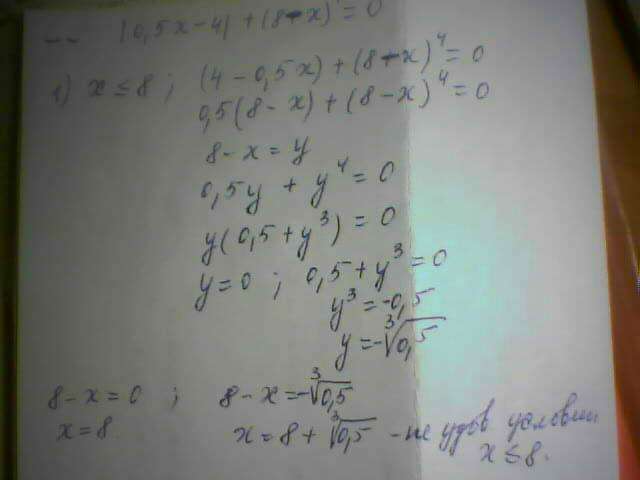 |0,5x-4| + (8-x)⁴ = 0
1) x ≤ 8 ; (4-0,5x) + (8-x)⁴ = 0
0,5(8-x) + (8-x)⁴ = 0
8-x = y
0,5y + y⁴ = 0
y(0,5 + y³) = 0
y = 0 ; 0,5 + y³ = 0
y³ = -0,5
y = -∛0,5
8-x = 0 ; 8-x = -∛0,5
x = 8 x = 8 + ∛0,5 - не удов. условию
x ≤ 8.